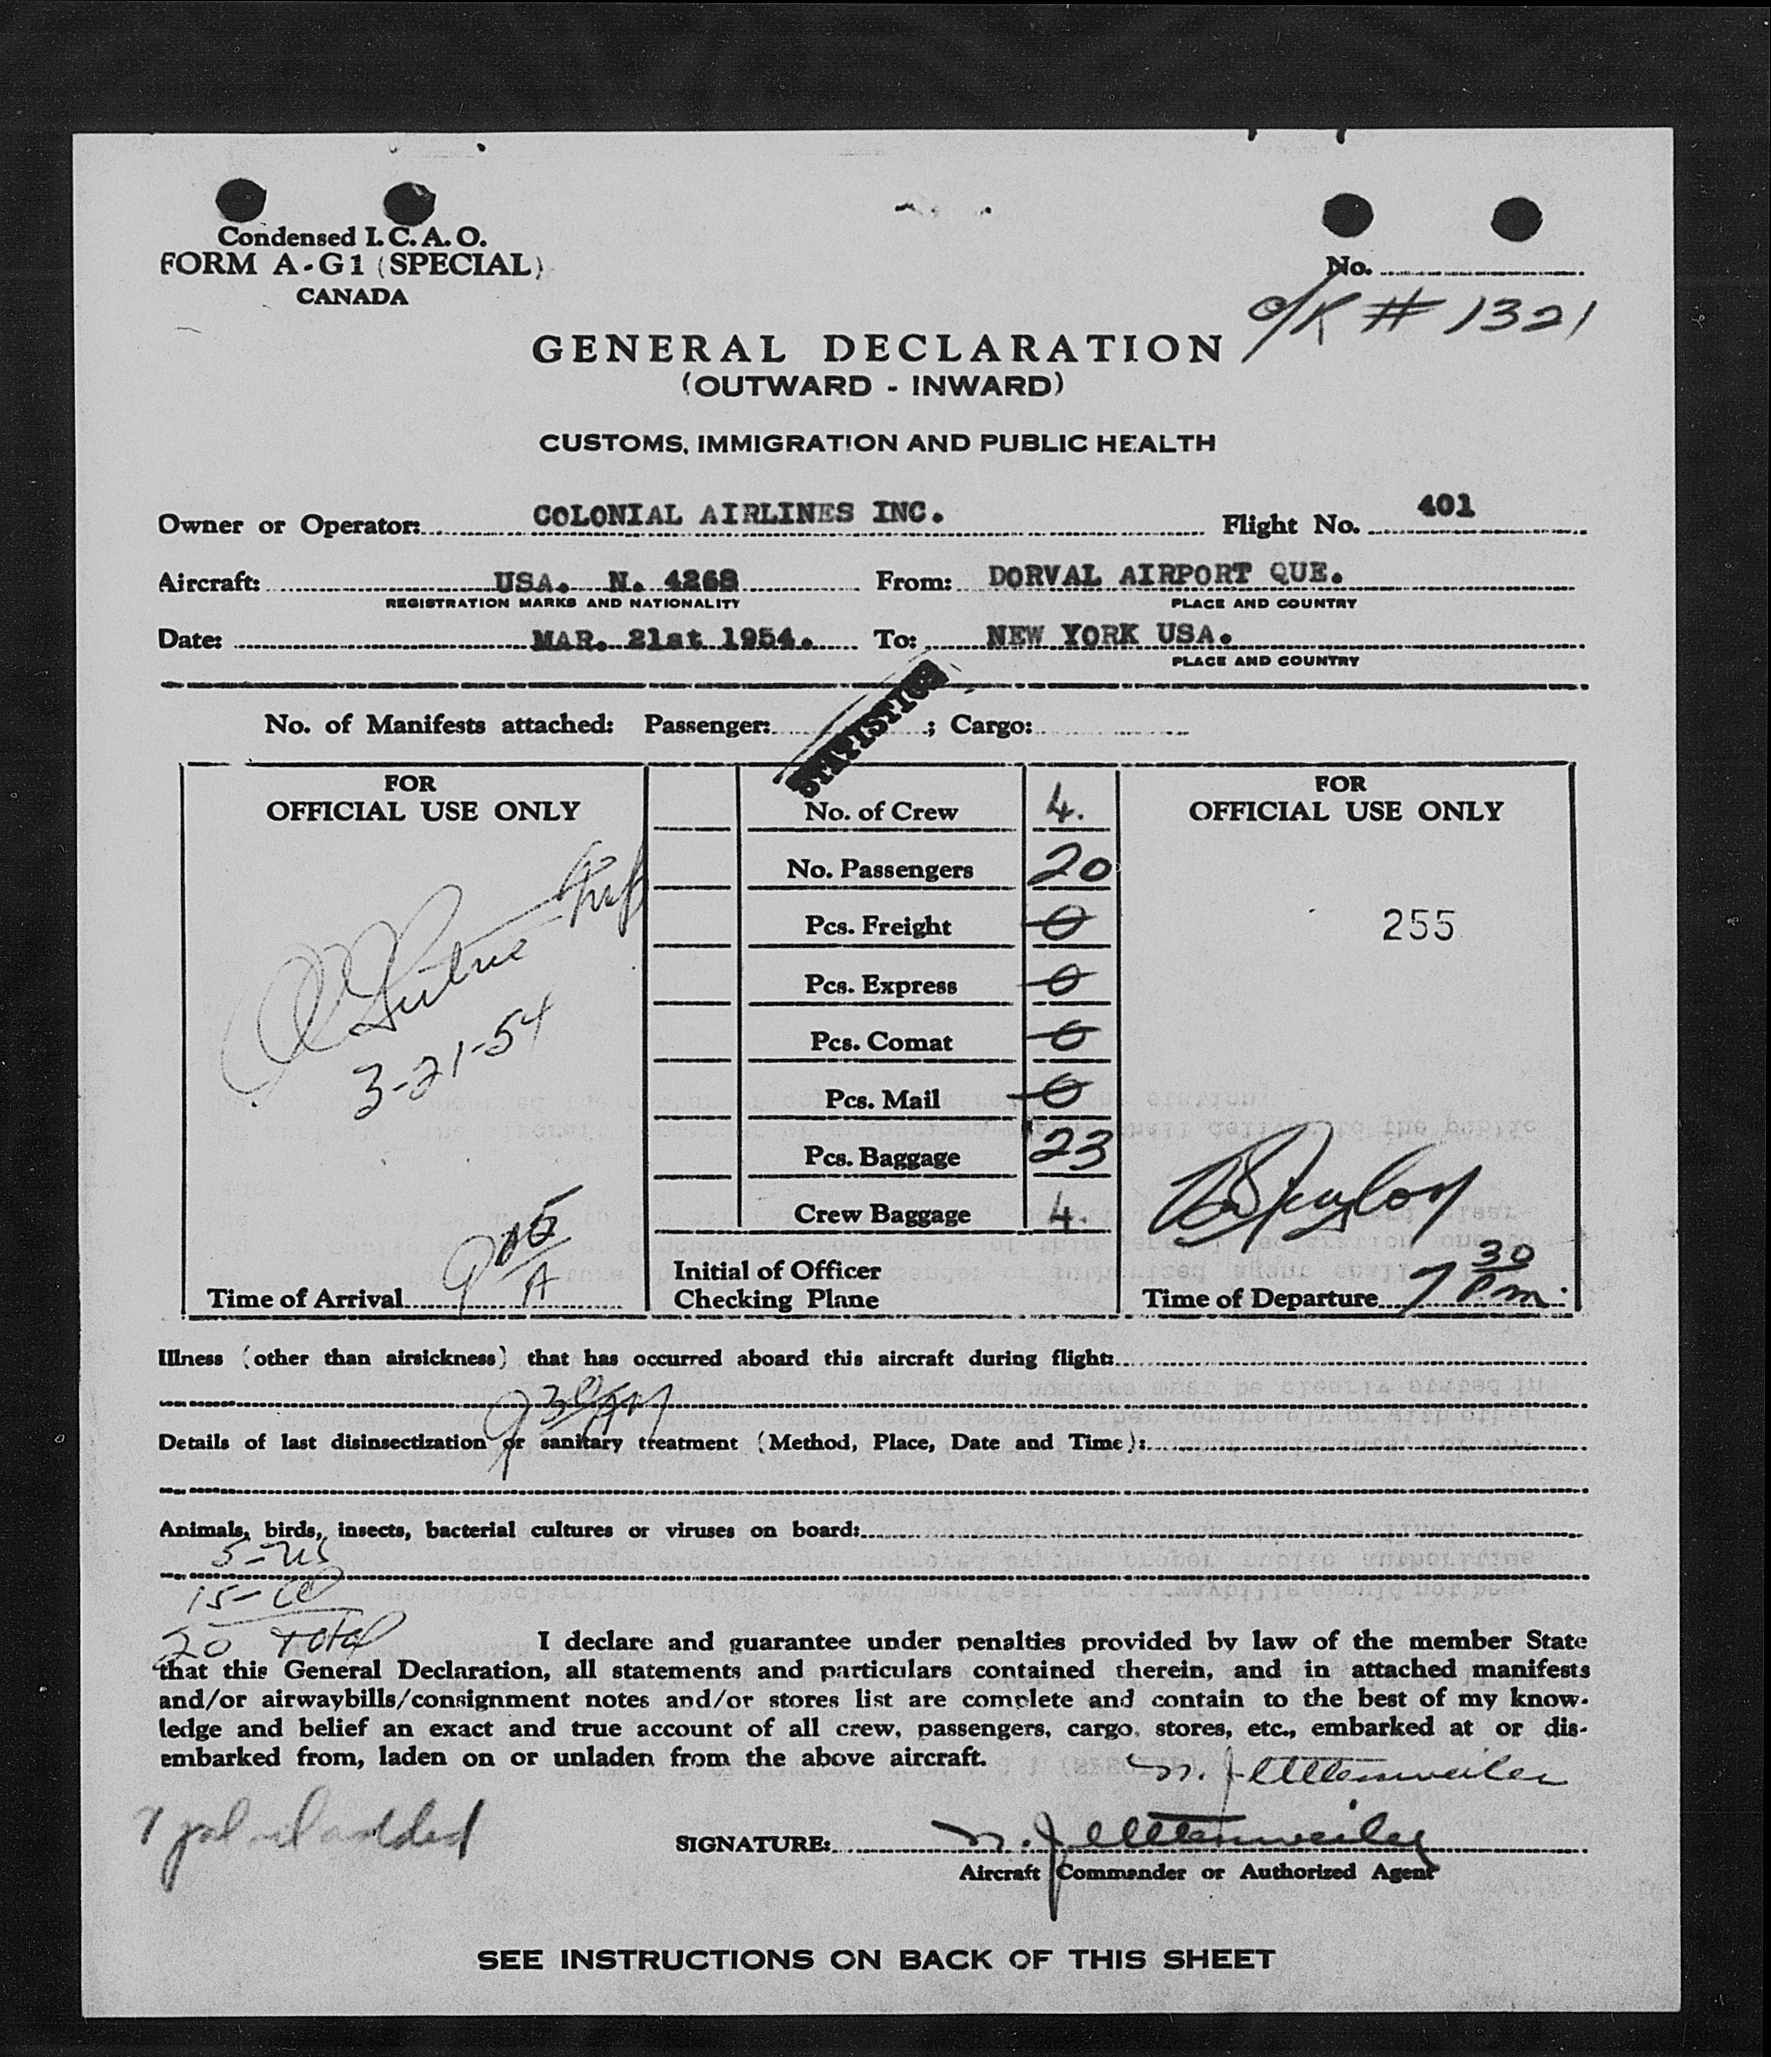 Condensed I. C. A. O.
FORM A-G1 (SPECIAL)
CANADA
No.
O/K # 1321
GENERAL DECLARATION
(OUTWARD - INWARD)
CUSTOMS, IMMIGRATION AND PUBLIC HEALTH
Owner or Operator: COLONIAL AIRLINES INC. Flight No. 401
Aircraft: USA. N. 4268 From: DORVAL AIRPORT QUE.
REGISTRATION MARKS AND NATIONALITY PLACE AND COUNTRY
Date: MAR. 21st 1954. To: NEW YORK USA.
PLACE AND COUNTRY
STATISTICS
No. of Manifests attached: Passenger: ; Cargo:
FOR
OFFICIAL USE ONLY
3-21-54
Time of Arrival 9 15 A
No. of Crew 4.
No. Passengers 20
Pcs. Freight 0
Pcs. Express 0
Pcs. Comat 0
Pcs. Mail 0
Pcs. Baggage 23
Crew Baggage 4.
Initial of Officer
Checking Plane
FOR
OFFICIAL USE ONLY
255
Time of Departure 7 30 Pm.
Illness (other than airsickness) that has occurred aboard this aircraft during flight:
9 30 AM
Details of last disinsectization or sanitary treatment (Method, Place, Date and Time):
Animals, birds, insects, bacterial cultures or viruses on board:
5-US
15-
20 Total
I declare and guarantee under penalties provided by law of the member State
that this General Declaration, all statements and particulars contained therein, and in attached manifests
and/or airwaybills/consignment notes and/or stores list are complete and contain to the best of my know-
ledge and belief an exact and true account of all crew, passengers, cargo, stores, etc., embarked at or dis-
embarked from, laden on or unladen from the above aircraft.
added
SIGNATURE:
Aircraft Commander or Authorized Agent
SEE INSTRUCTIONS ON BACK OF THIS SHEET